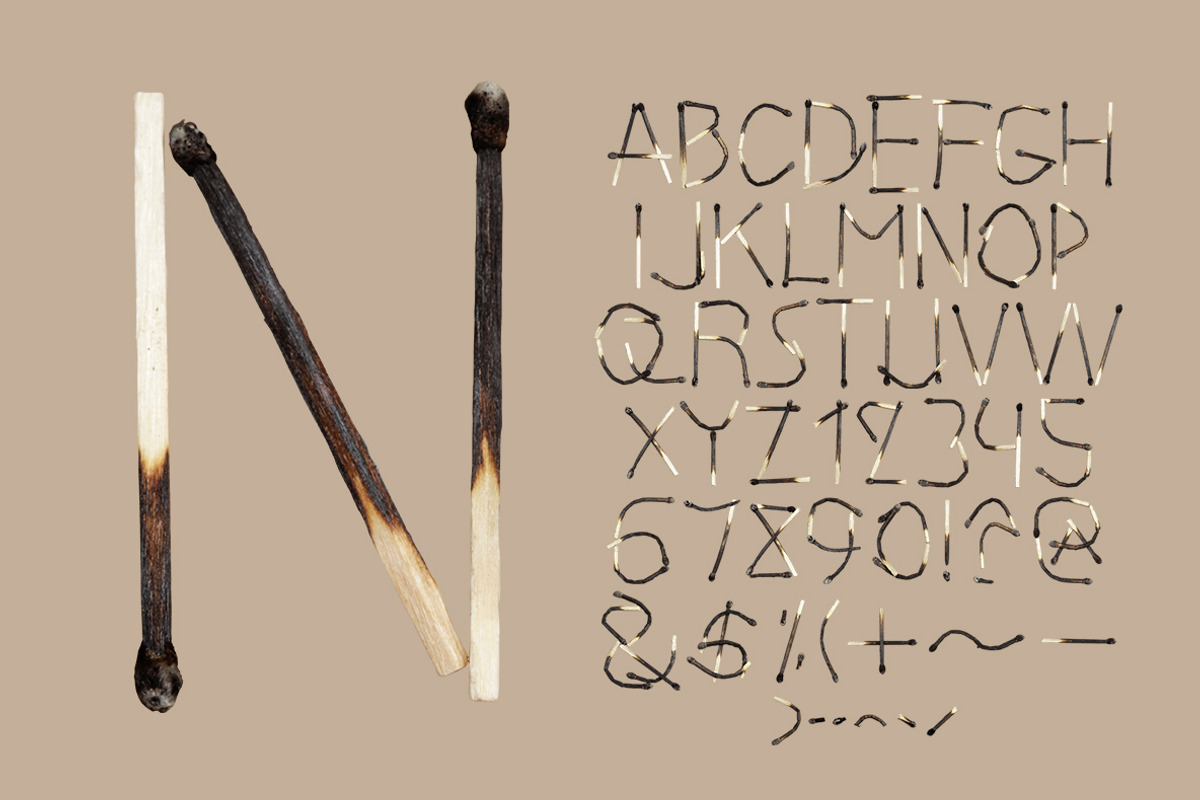 N
ABCDEFGH
IJKLMNOP
QRSTUVW
XYZ12345
67890!?@
&$%(+~-
)